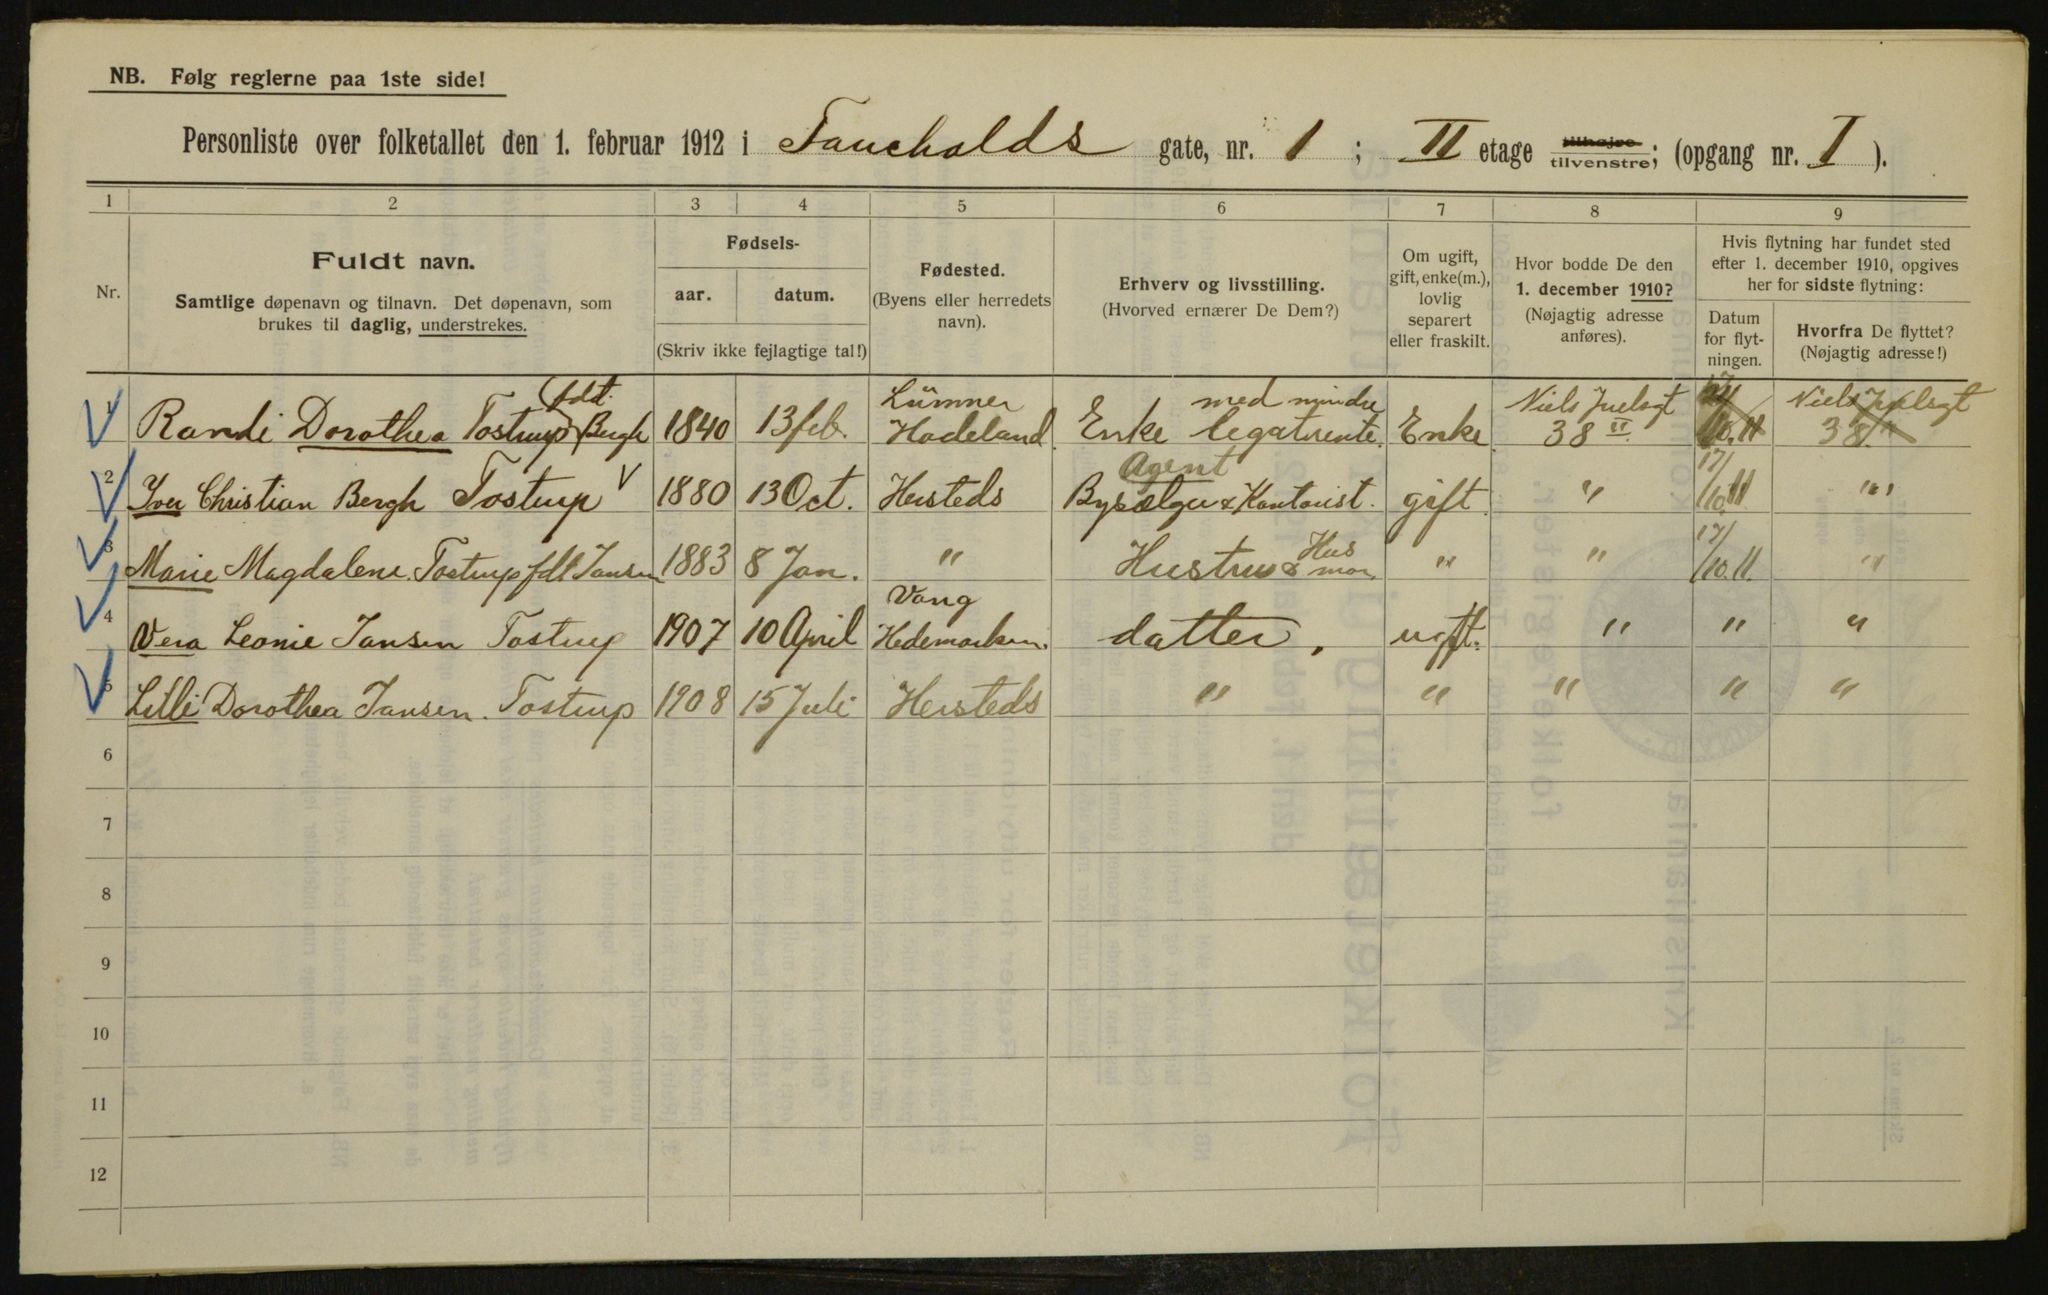 NB. Følg reglerne paa 1ste side!
Personliste over folketallet den 1. februar 1912 i Faucholds gate, nr. 1 ; II etage tilhøjre tilvenstre; (opgang nr. I ).
1 2 3 4 5 6 7 8 9
Nr.
Fuldt navn.
Samtlige døpenavn og tilnavn. Det døpenavn, som
brukes til daglig, understrekes.
Fødsels-
aar. datum.
(Skriv ikke fejlagtige tal!)
Fødested.
(Byens eller herredets
navn).
Erhverv og livsstilling.
(Hvorved ernærer De Dem?)
Om ugift,
gift, enke(m.),
lovlig
separert
eller fraskilt.
Hvor bodde De den
1. december 1910?
(Nøjagtig adresse
anføres).
Hvis flytning har fundet sted
efter 1. december 1910, opgives
her for sidste flytning:
Datum
for flyt-
ningen.
Hvorfra De flyttet?
(Nøjagtig adresse!)
1 Randi Dorothea Tostrup fdt. Bergh 1840 13 feb. Lünner Hadeland Enke med mindre legatrente. Enke Niels Juelsgt 38 II 17/10.11 Niels Juelsgt 38 "
2 Iver Christian Bergh Tostrup 1880 13 Oct. Hersteds Agent Bysælger & Kontorist. gift " 17/10.11 "
3 Marie Magdalene Tostrup fdt Jansen 1883 8 Jan. " Hustru & Hus mor " " 17/10.11. "
4 Vera Leonie Jansen Tostrup 1907 10 April Vang Hedemarken. datter, ugft. " " "
5 Lilli Dorothea Jansen Tostrup 1908 15 Juli Hersteds " " " " "
6
7
8
9
10
11
12